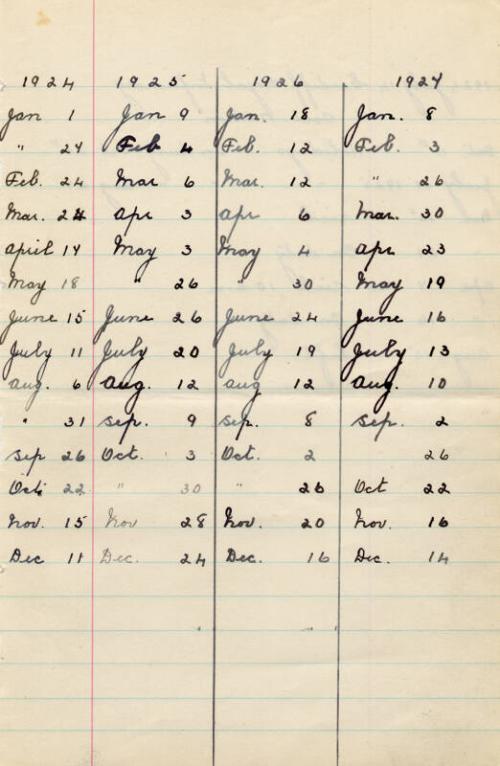 1924 1925 1926 1927
Jan 1 Jan 9 Jan. 18 Jan. 8
" 27 Feb 4 Feb. 12 Feb. 3
Feb. 24 Mar 6 Mar. 12 " 26
Mar. 24 Apr 3 Apr 6 Mar. 30
April 17 May 3 May 4 Apr 23
May 18 " 26 " 30 May 19
June 15 June 26 June 24 June 16
July 11 July 20 July 19 July 13
Aug. 6 Aug. 12 Aug 12 Aug. 10
" 31 Sep. 9 Sep. 8 Sep. 2
Sep 26 Oct. 3 Oct. 2 26
Oct. 22 " 30 " 26 Oct 22
Nov. 15 Nov 28 Nov. 20 Nov. 16
Dec 11 Dec. 24 Dec. 16 Dec. 14